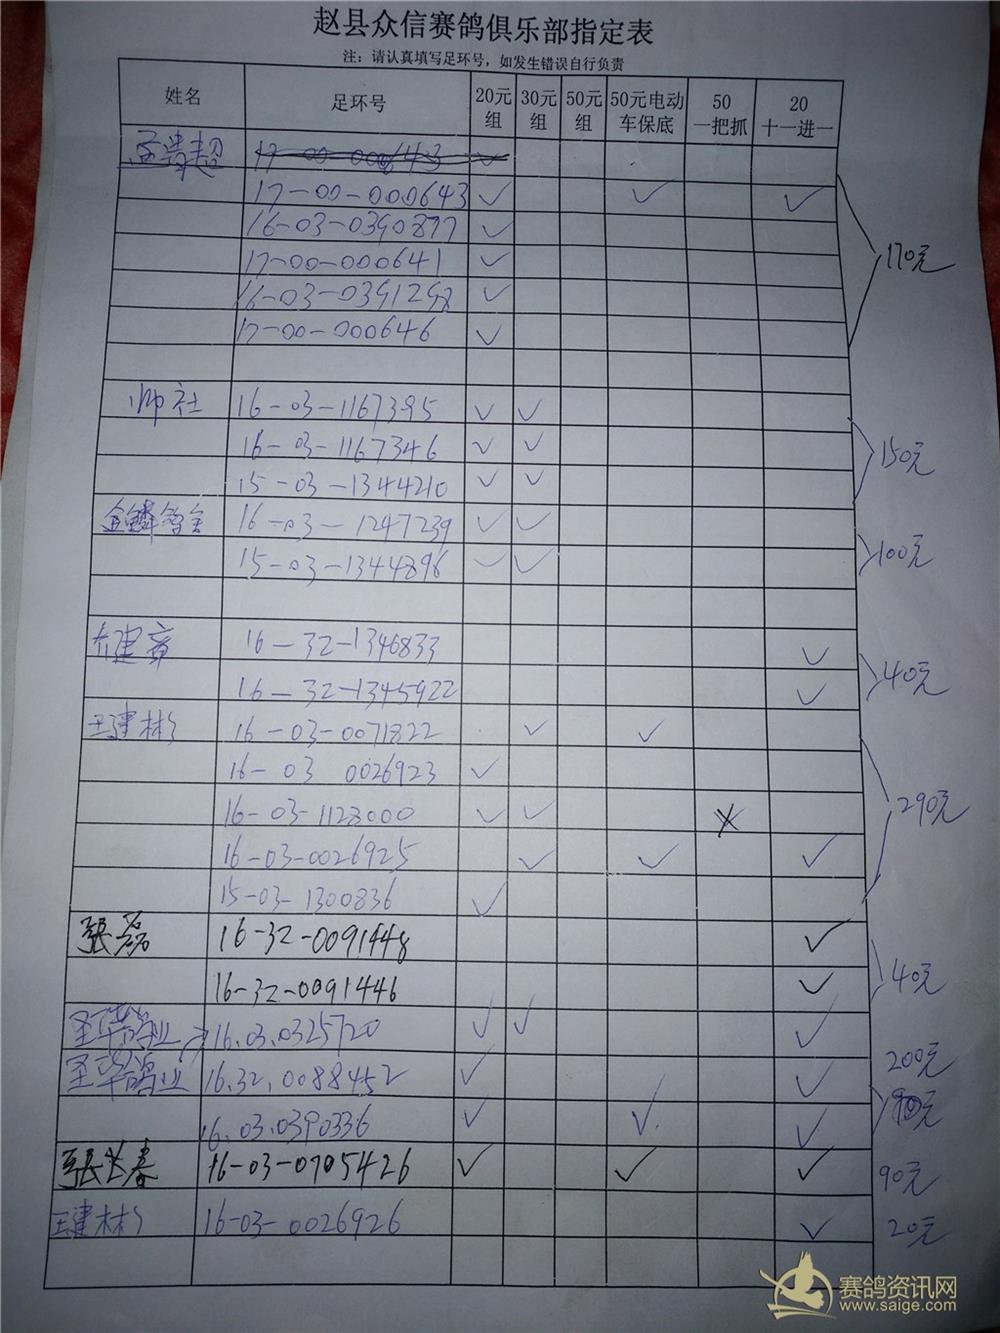 赵县众信赛鸽俱乐部指定表
注：请认真填写足环号，如发生错误自行负责
姓名 足环号 20元组 30元组 50元组 50元电动车保底 50一把抓 20十一进一
17-00-000643 ✓
17-00-000643 ✓ ✓ ✓
16-03-0390877 ✓
17-00-000641 ✓ 170元
16-03-0391298 ✓
17-00-000646 ✓
帅社 16-03-1167395 ✓ ✓
16-03-1167346 ✓ ✓ 150元
15-03-1344210 ✓ ✓
金鳞鸽舍 16-03-1247239 ✓ ✓
15-03-1344896 ✓ ✓ 100元
乔建章 16-32-1346833 ✓
16-32-1345922 ✓ 40元
王建彬 16-03-0071822 ✓ ✓
16-03 0026923 ✓
16-03-1128000 ✓ ✓ 290元
16-03-0026925 ✓ ✓ ✓
15-03-1300836 ✓
張磊 16-32-0091448 ✓
16-32-0091446 ✓ 40元
16.03.0325720 ✓ ✓ ✓
鸽业 16.32.0088452 ✓ ✓ 200元
16.03.0390336 ✓ ✓ ✓
張长春 16-03-0705426 ✓ ✓ ✓ 90元
王建彬 16-03-0026926 ✓ 20元
赛鸽资讯网
www.saige.com